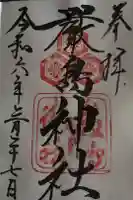 奉拝
嚴島神社
令和六年三月二十七日